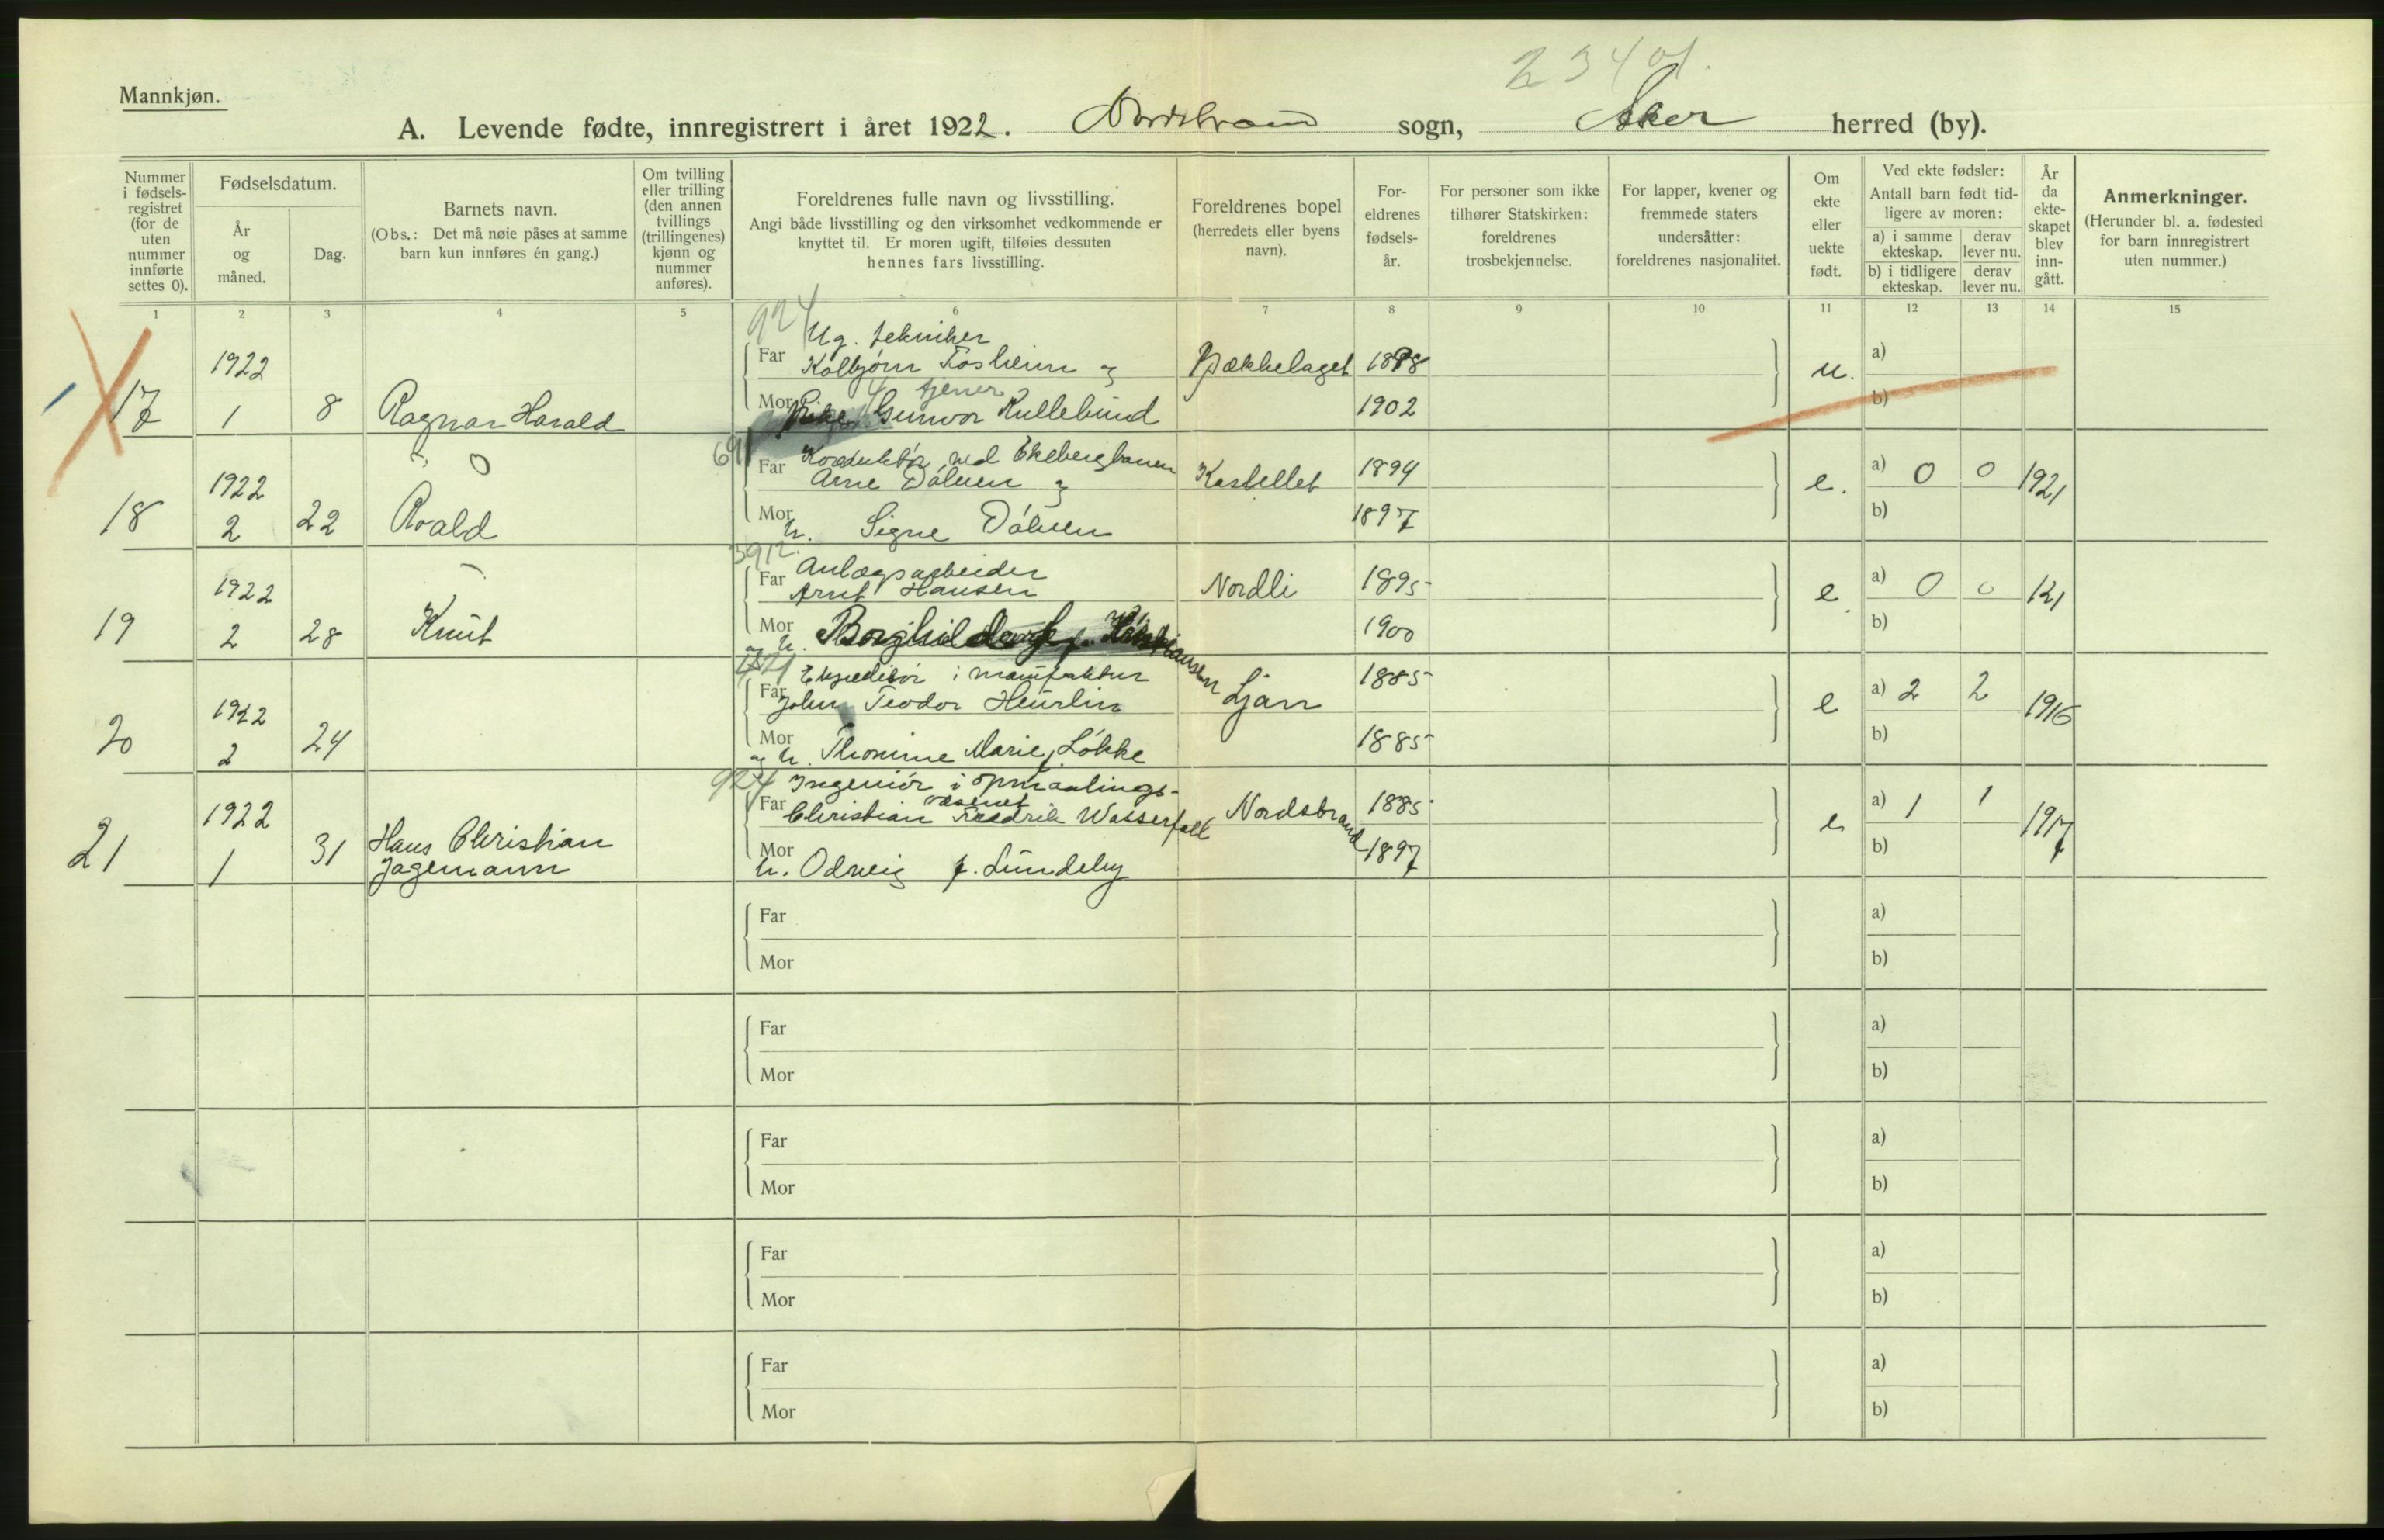 2340
Mannkjøn.
A. Levende fødte, innregistrert i året 1922. Nordstrand sogn, Aker herred (by).
Nummer i fødsels-registret (for de uten nummer innførte settes 0).
Fødselsdatum.
År og måned.
Dag.
Barnets navn.
(Obs.: Det må nøie påses at samme barn kun innføres én gang.)
Om tvilling eller trilling (den annen tvillings (trillingenes) kjønn og nummer anføres).
Foreldrenes fulle navn og livsstilling.
Angi både livsstilling og den virksomhet vedkommende er knyttet til. Er moren ugift, tilføies dessuten hennes fars livsstilling.
Foreldrenes bopel (herredets eller byens navn).
For-eldrenes fødsels-år.
For personer som ikke tilhører Statskirken: foreldrenes trosbekjennelse.
For lapper, kvener og fremmede staters undersåtter: foreldrenes nasjonalitet.
Om ekte eller uekte født.
Ved ekte fødsler:
Antall barn født tid-ligere av moren:
a) i samme ekteskap. derav lever nu.
b) i tidligere ekteskap. derav lever nu.
År da ekte-skapet blev inn-gått.
Anmerkninger.
(Herunder bl. a. fødested for barn innregistrert uten nummer.)
1 2 3 4 5 6 7 8 9 10 11 12 13 14 15
924 Ug. tekniker
17 1922 1 8 Ragnar Harald
Far Kolbjørn og Bækkelaget 1898 u. a)
tjener
Mor Pike Gunvor Kullebund 1902 b)
691 Konduktør ved Ekebergbanen
18 1922 2 22 Roald
Far Arne Dølven og Kastellet 1894 e. a) 0 0 1921
Mor h. Signe Dølven 1897 b)
3912 Anlægsarbeider
19 1922 2 28 Knut
Far Arnt Hansen Nordli 1895 e. a) 0 0 121
Mor og h. Borghild f. Kristiansen 1900 b)
Ekspeditør i manufaktur
20 1922 2 24
Far John Teodor Heurlin Ljan 1885 e a) 2 2 1916
Mor og h. Thomine Marie f. Løkke 1885 b)
924 Ingeniør i opmaalings-
væsenet
21 1922 1 31 Hans Christian Jagemann
Far Christian Fredrik Wasserfall Nordstrand 1885 e a) 1 1 1917
Mor h. Odveig f. Lundeby 1897 b)
Far a)
Mor b)
Far a)
Mor b)
Far a)
Mor b)
Far a)
Mor b)
Far a)
Mor b)